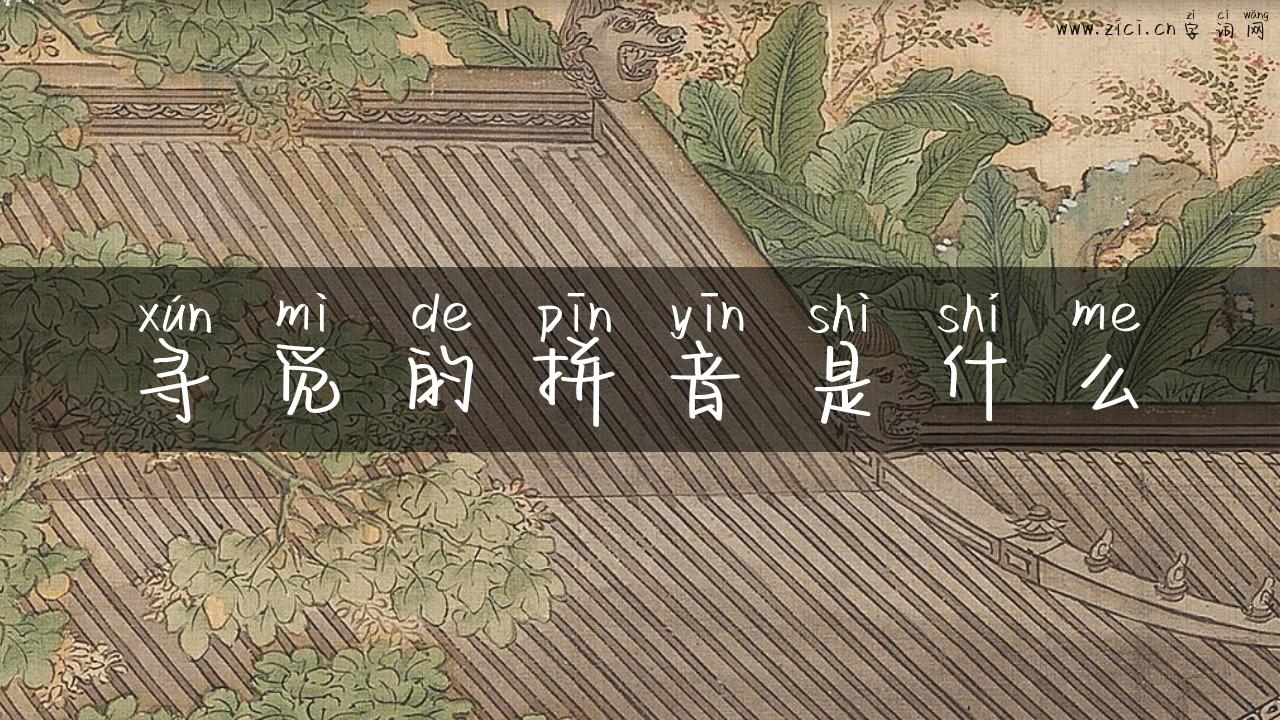 zì cí wǎng
www.zici.cn 字词网
xún mì de pīn yīn shì shí me
寻觅的拼音是什么